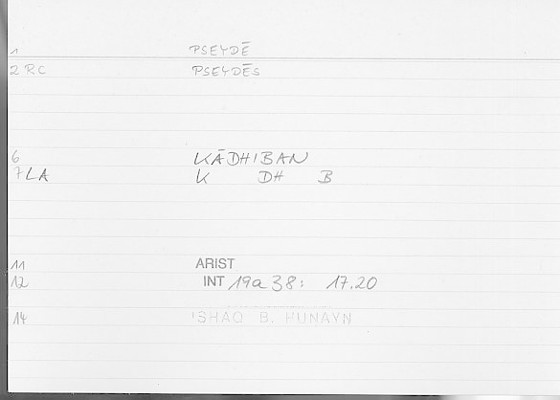 1 PSEYDĒ
2 RC PSEYDĒS
6 KĀDHIBAN
7 LA K DH B
11 ARIST
12 INT 19a38: 17.20
14 ISHAQ B. HUNAYN